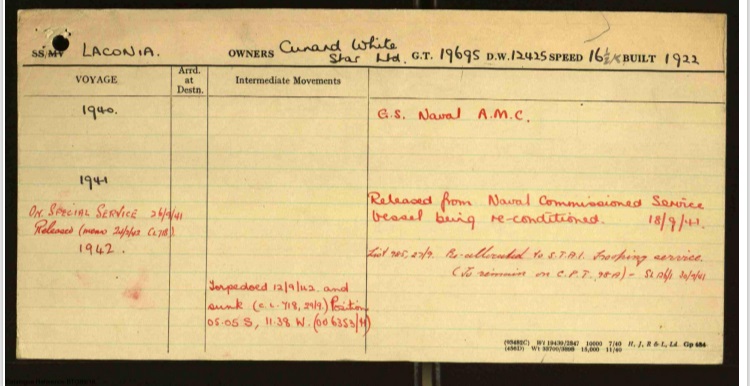 SS/MV LACONIA. OWNERS Cunard White Star Ltd. G.T. 19695 D.W. 12425 SPEED 16½K BUILT 1922
VOYAGE
Arrd. at Destn.
Intermediate Movements
1940.
G.S. Naval A.M.C.
1941
Released from Naval Commissioned Service
vessel being re-conditioned. 18/9/41.
On SPECIAL SERVICE 26/9/41
Released (memo 24/9/42 CL718)
1942.
List 205, 27/9. Re-allocated to S.T.A.1. Trooping service.
(To remain on C.P.T. 98A) -
Torpedoed 12/9/42 and
sunk (C.L. 718, 29/9) Position
05.05 S, 11.38 W. (006353/41)
(93482C) Wt 19430/2847 10000 7/40 H, J, R & L, Ld. Gp 684
(4502D) Wt 33700/3808 15,000 11/40